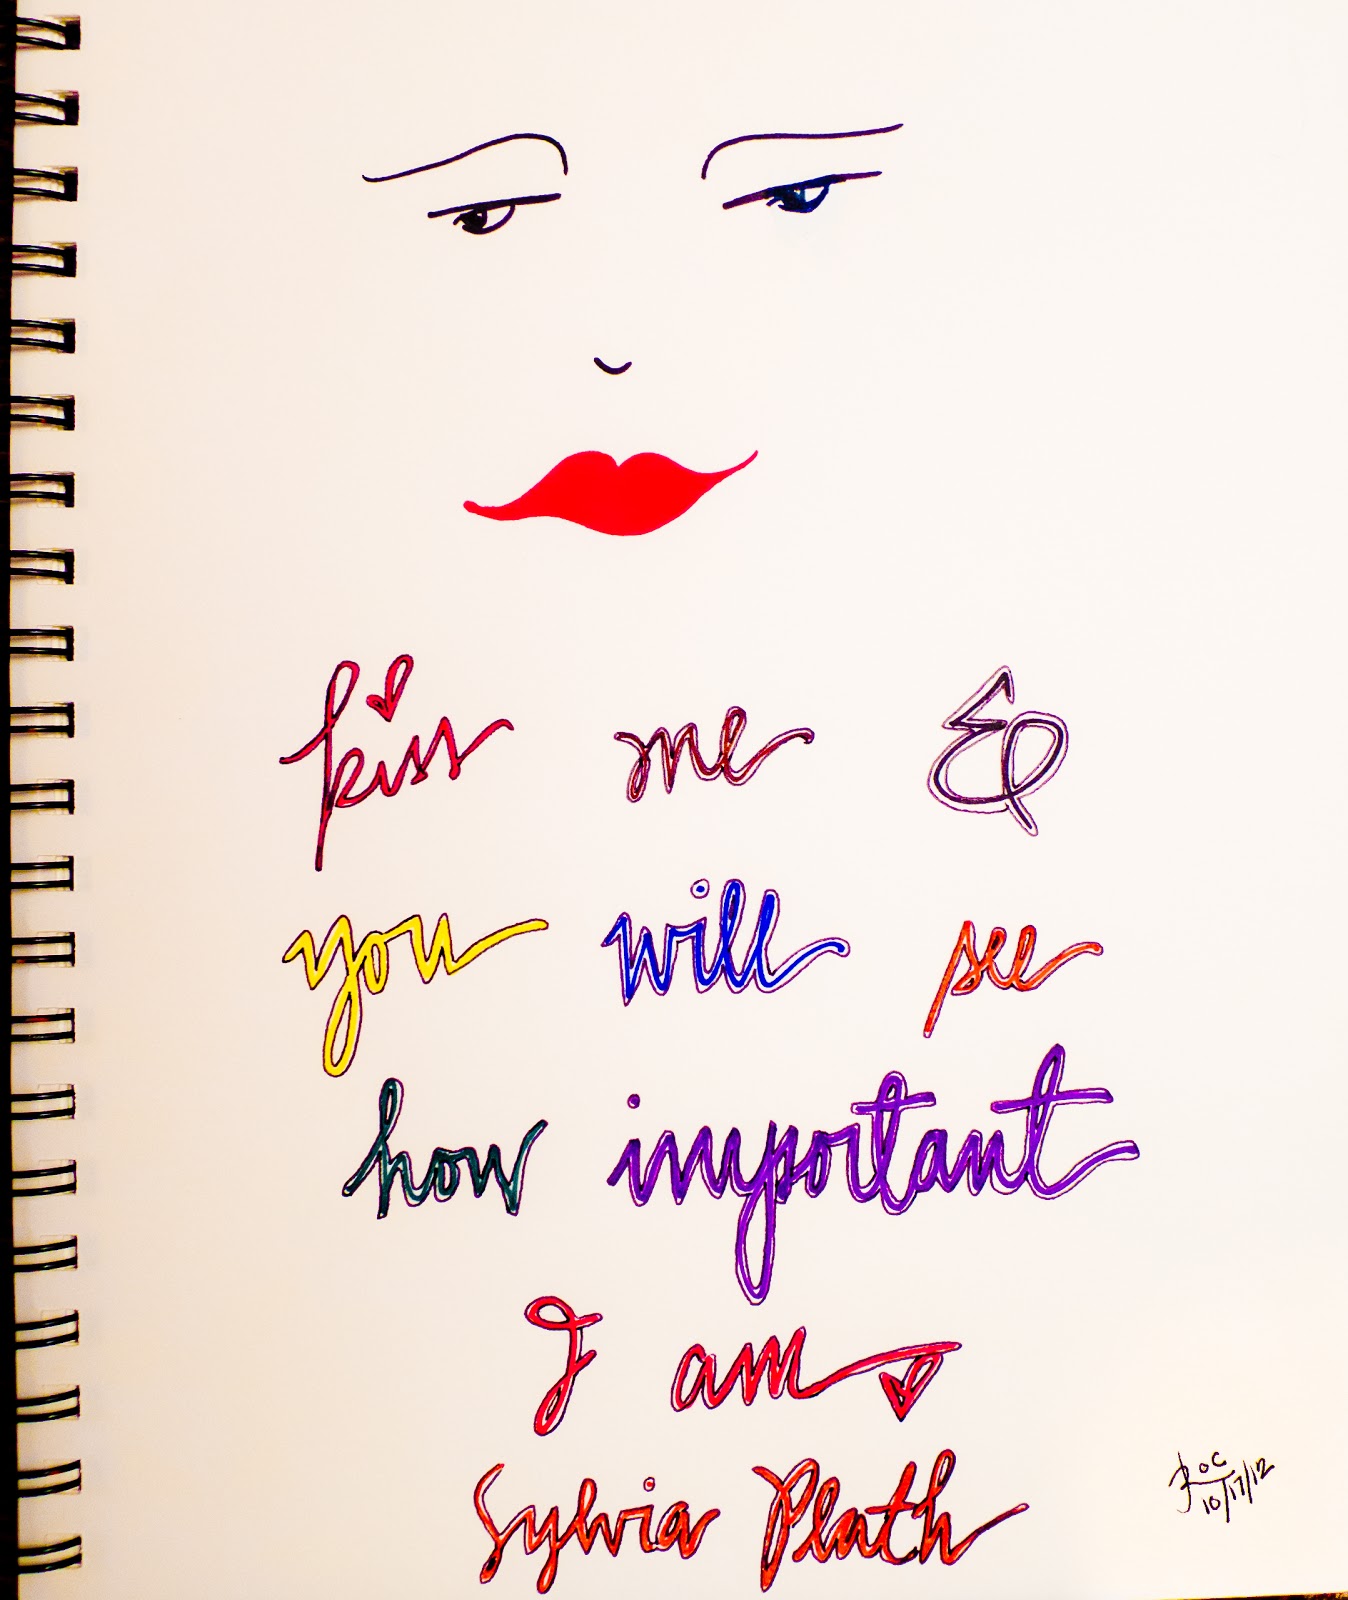 kiss me &
you will see
how important
I am
Sylvia Plath
Roc
10/17/12